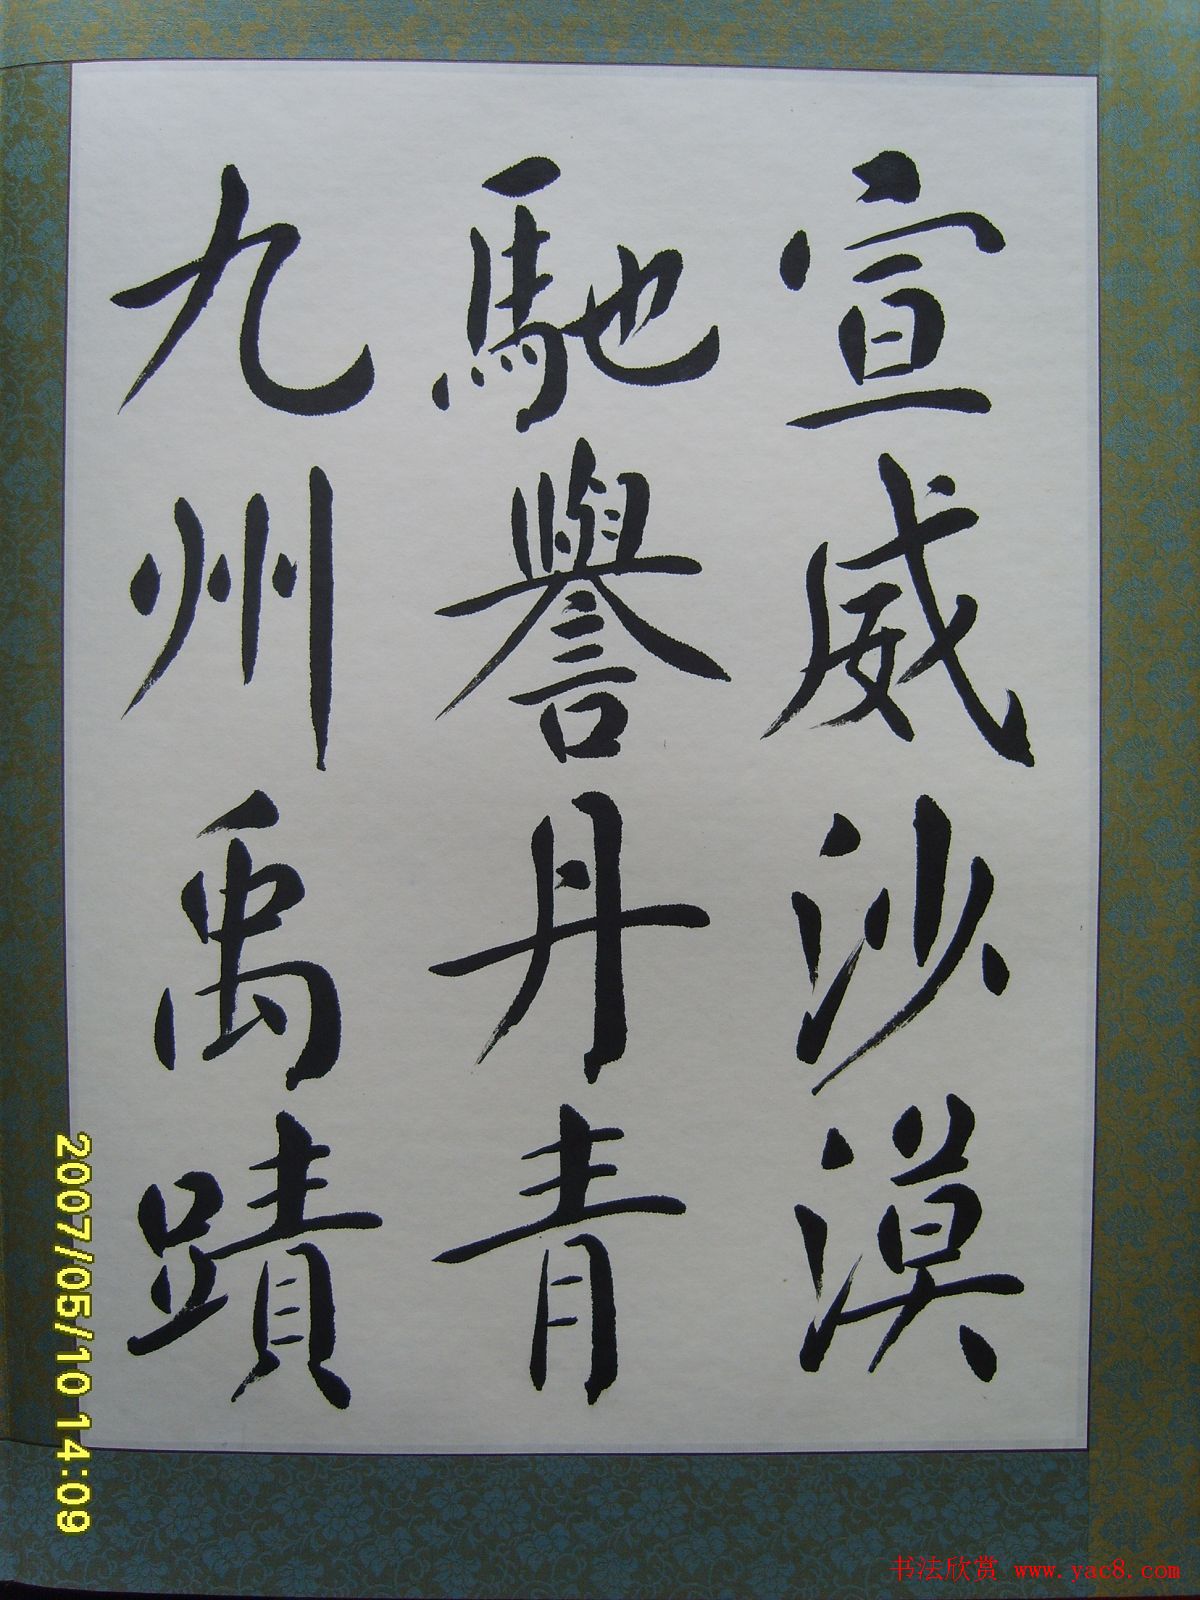 宣威沙漠
馳譽丹青
九州禹蹟
2007/05/10 14:09
书法欣赏 www.yac8.com